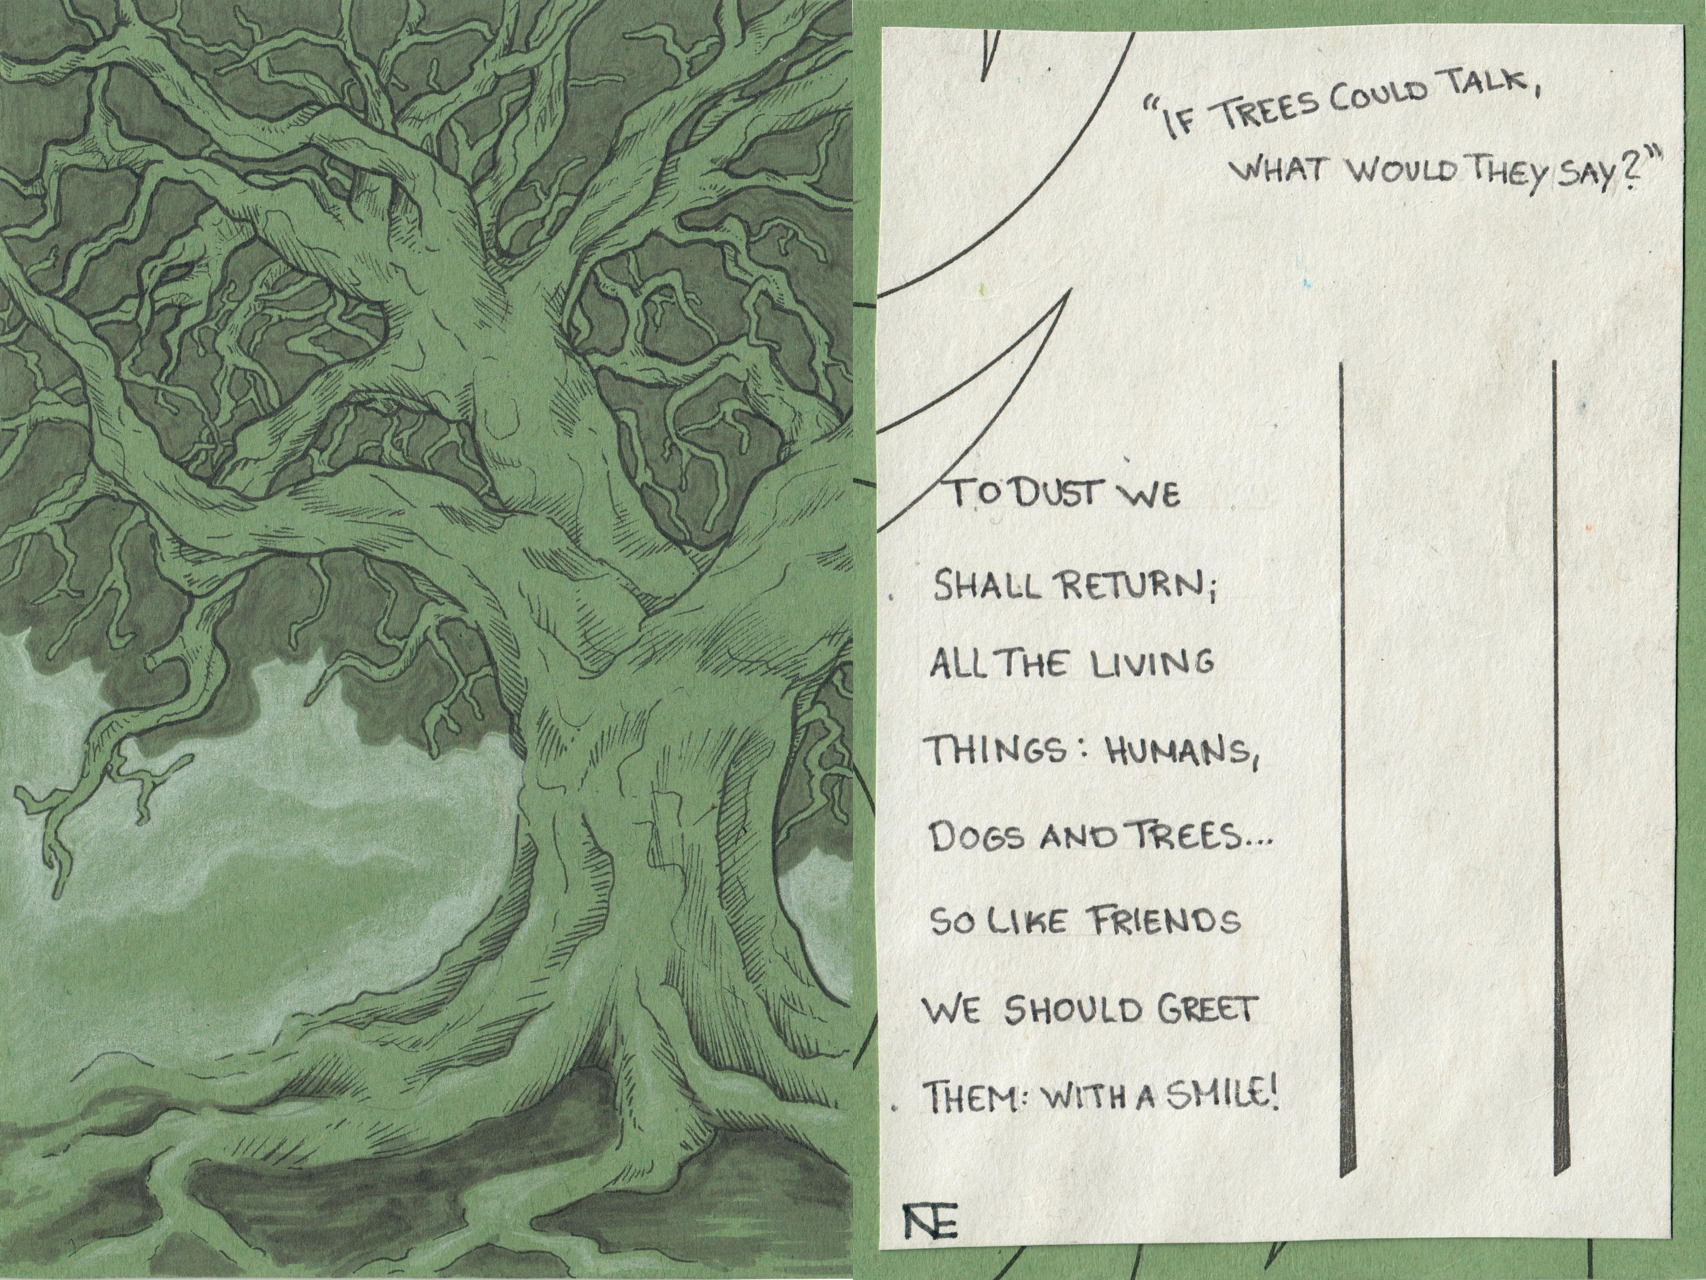 "IF TREES COULD TALK,
WHAT WOULD THEY SAY?"
TO DUST WE
SHALL RETURN;
ALL THE LIVING
THINGS: HUMANS,
DOGS AND TREES...
SO LIKE FRIENDS
WE SHOULD GREET
THEM: WITH A SMILE!
NE